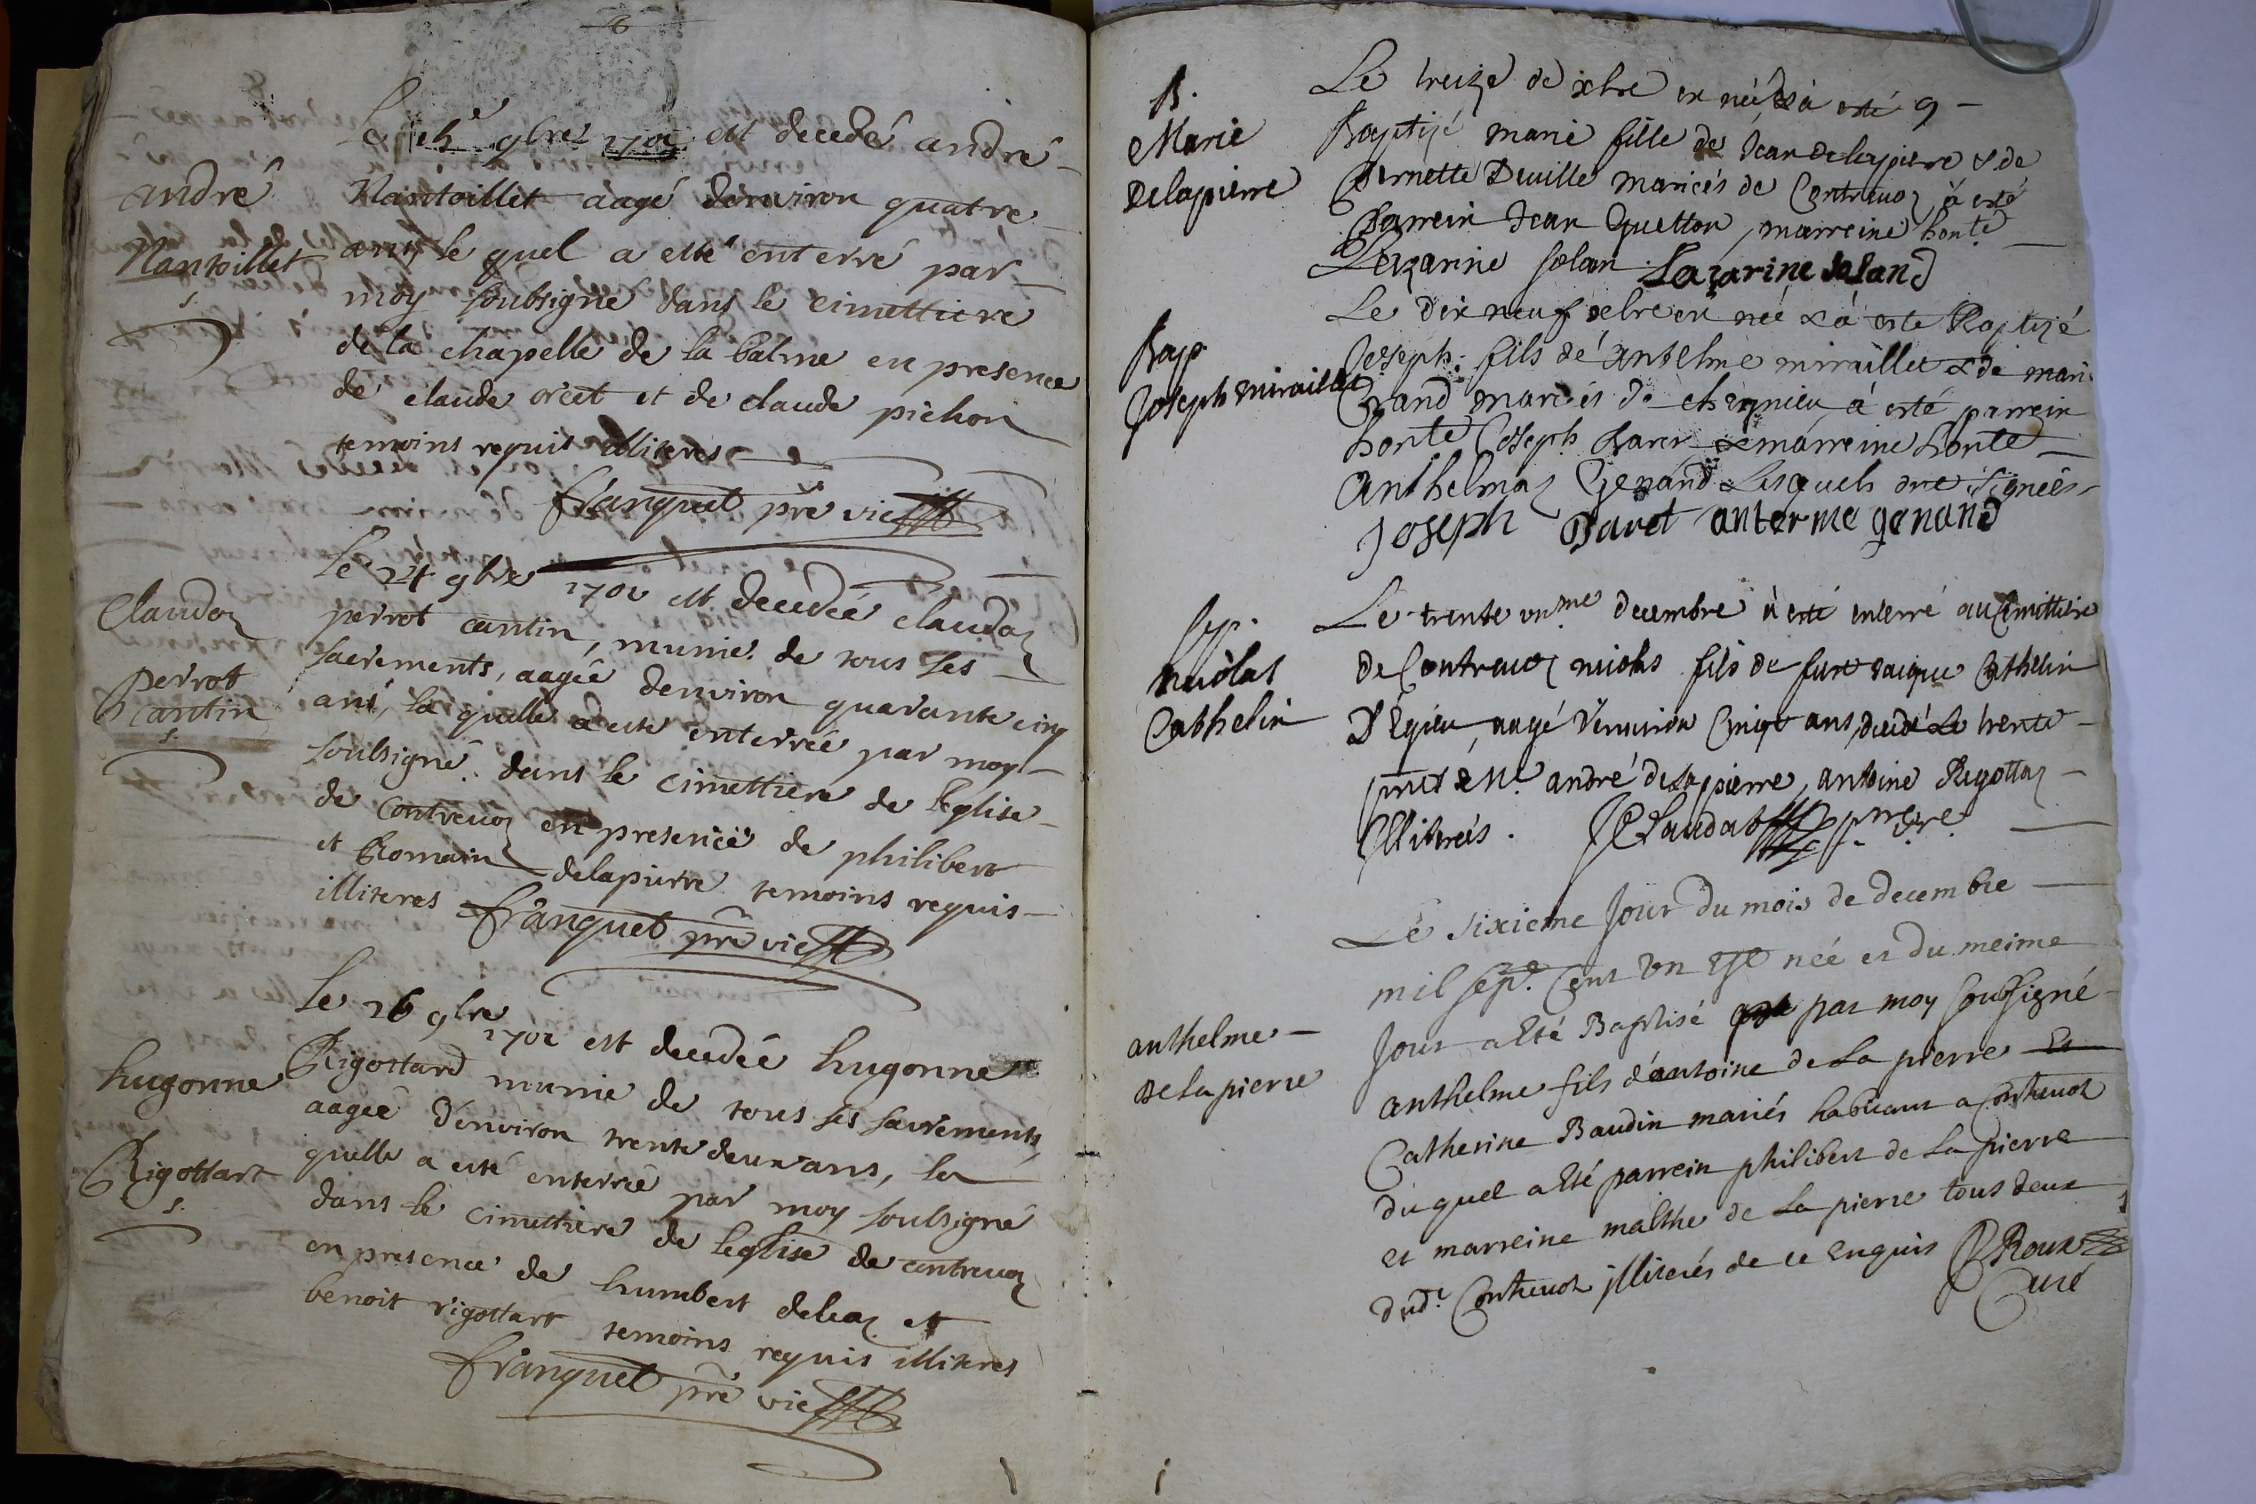 8
Le 9bre 1701 est decedé andré
Nantoillet aagé d'environ quatre
ans le quel a esté enterré par
moy soubsigné dans le cimettiere
de la chapelle de la balme en presence
de claude et de claude pichon
temoins requis illiteres
franquet pre vic
andré
Nantoillet
s.
Le 24 9bre 1701 est decedée claudaz
perrot cantin, munie de tous ses
sacrements, aagée denviron quarante cinq
ans, la quelle a esté enterrée par moy
soubsigné dans le cimettiere de leglise
de Contrevoz en presence de philibert
et Romain delapierre temoins requis
illiteres franquet pre vic
Claudaz
perrot
cantin
s.
Le 26 9bre 1701 est decedée hugonne
Rigottard munie de tous ses sacrements
aagée d'environ trente deux ans, la
quelle a esté enterrée par moy soubsigné
dans le cimettiere de leglise de contrevoz
en presence de humbert et
benoit rigottart temoins requis illiteres
franquet pre vic
hugonne
Rigottart
s.
B.
Marie
Delapierre
Le treize de xbre en née & à esté
Baptizé marie fille de Jean Delapierre & de
Pernette Deville mariés de Contrevoz, à esté
Parrein Jean Guetton, marreine honte
Lazarine solan Lazarine soland
Bap
Joseph miraillet
Le dix neuf xbre en née & à esté Baptizé
Joseph fils de Antelme miraillet & de marie
mariés de cheignieu à esté parrein
honte Joseph & marreine honte
Anthelmaz Genand Lesquels ont signés
Joseph Davet anterme genand
Sep.
nicolas
Cathelin
Le trente unme decembre à esté enterré au Cimittiere
de Contrevoz nicolas fils de Cathelin
D'Egieu, aagé d'environ Cinqt ans, decedé Le trente
andré delapierre, antoine Rigottaz
Illiterés. JClaudat
anthelme
De la pierre
Le sixieme Jour du mois de decembre
mil sept Cent un est née et du meime
Jour a esté Baptisé par moy soussigné
anthelme fils d'antoine de La pierre et
Catherine Baudin mariés habitant a Contrevoz
du quel a esté parrein philibert de La pierre
et marreine malthe de La pierre tous deux
dudt Contrevoz illiterés de ce enquis Roux
Curé